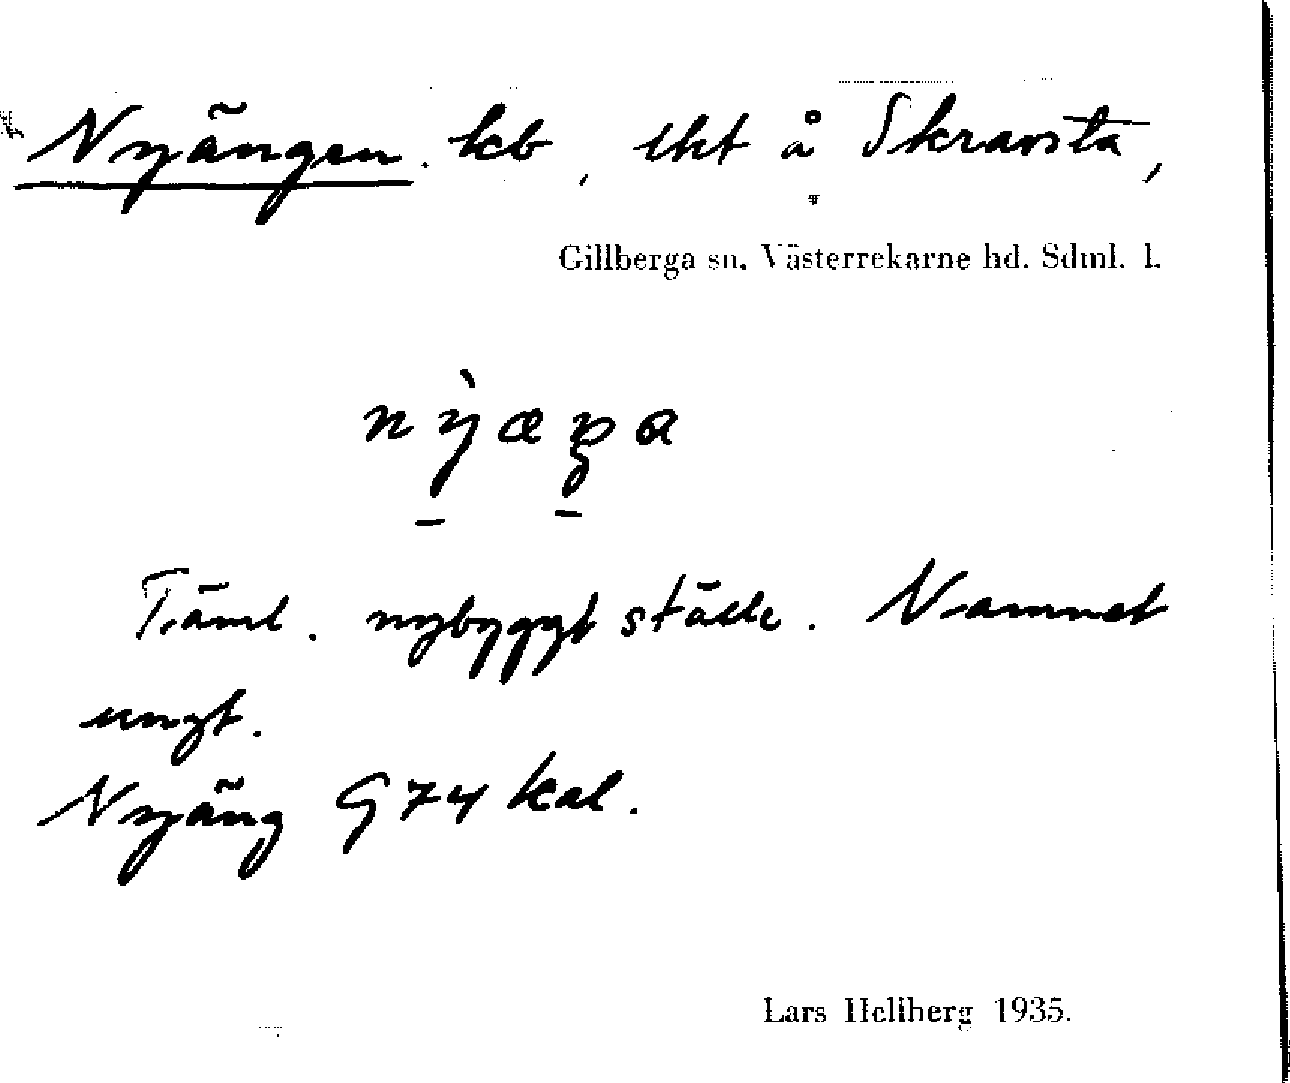 Nyängen. lcb, lht å Skravsta,
Gillberga sn. Västerrekarne hd. Sdml. l.
Täml. nybyggt ställe. Namnet
ungt.
Nyäng G 74 kal.
Lars Hellberg 1935.